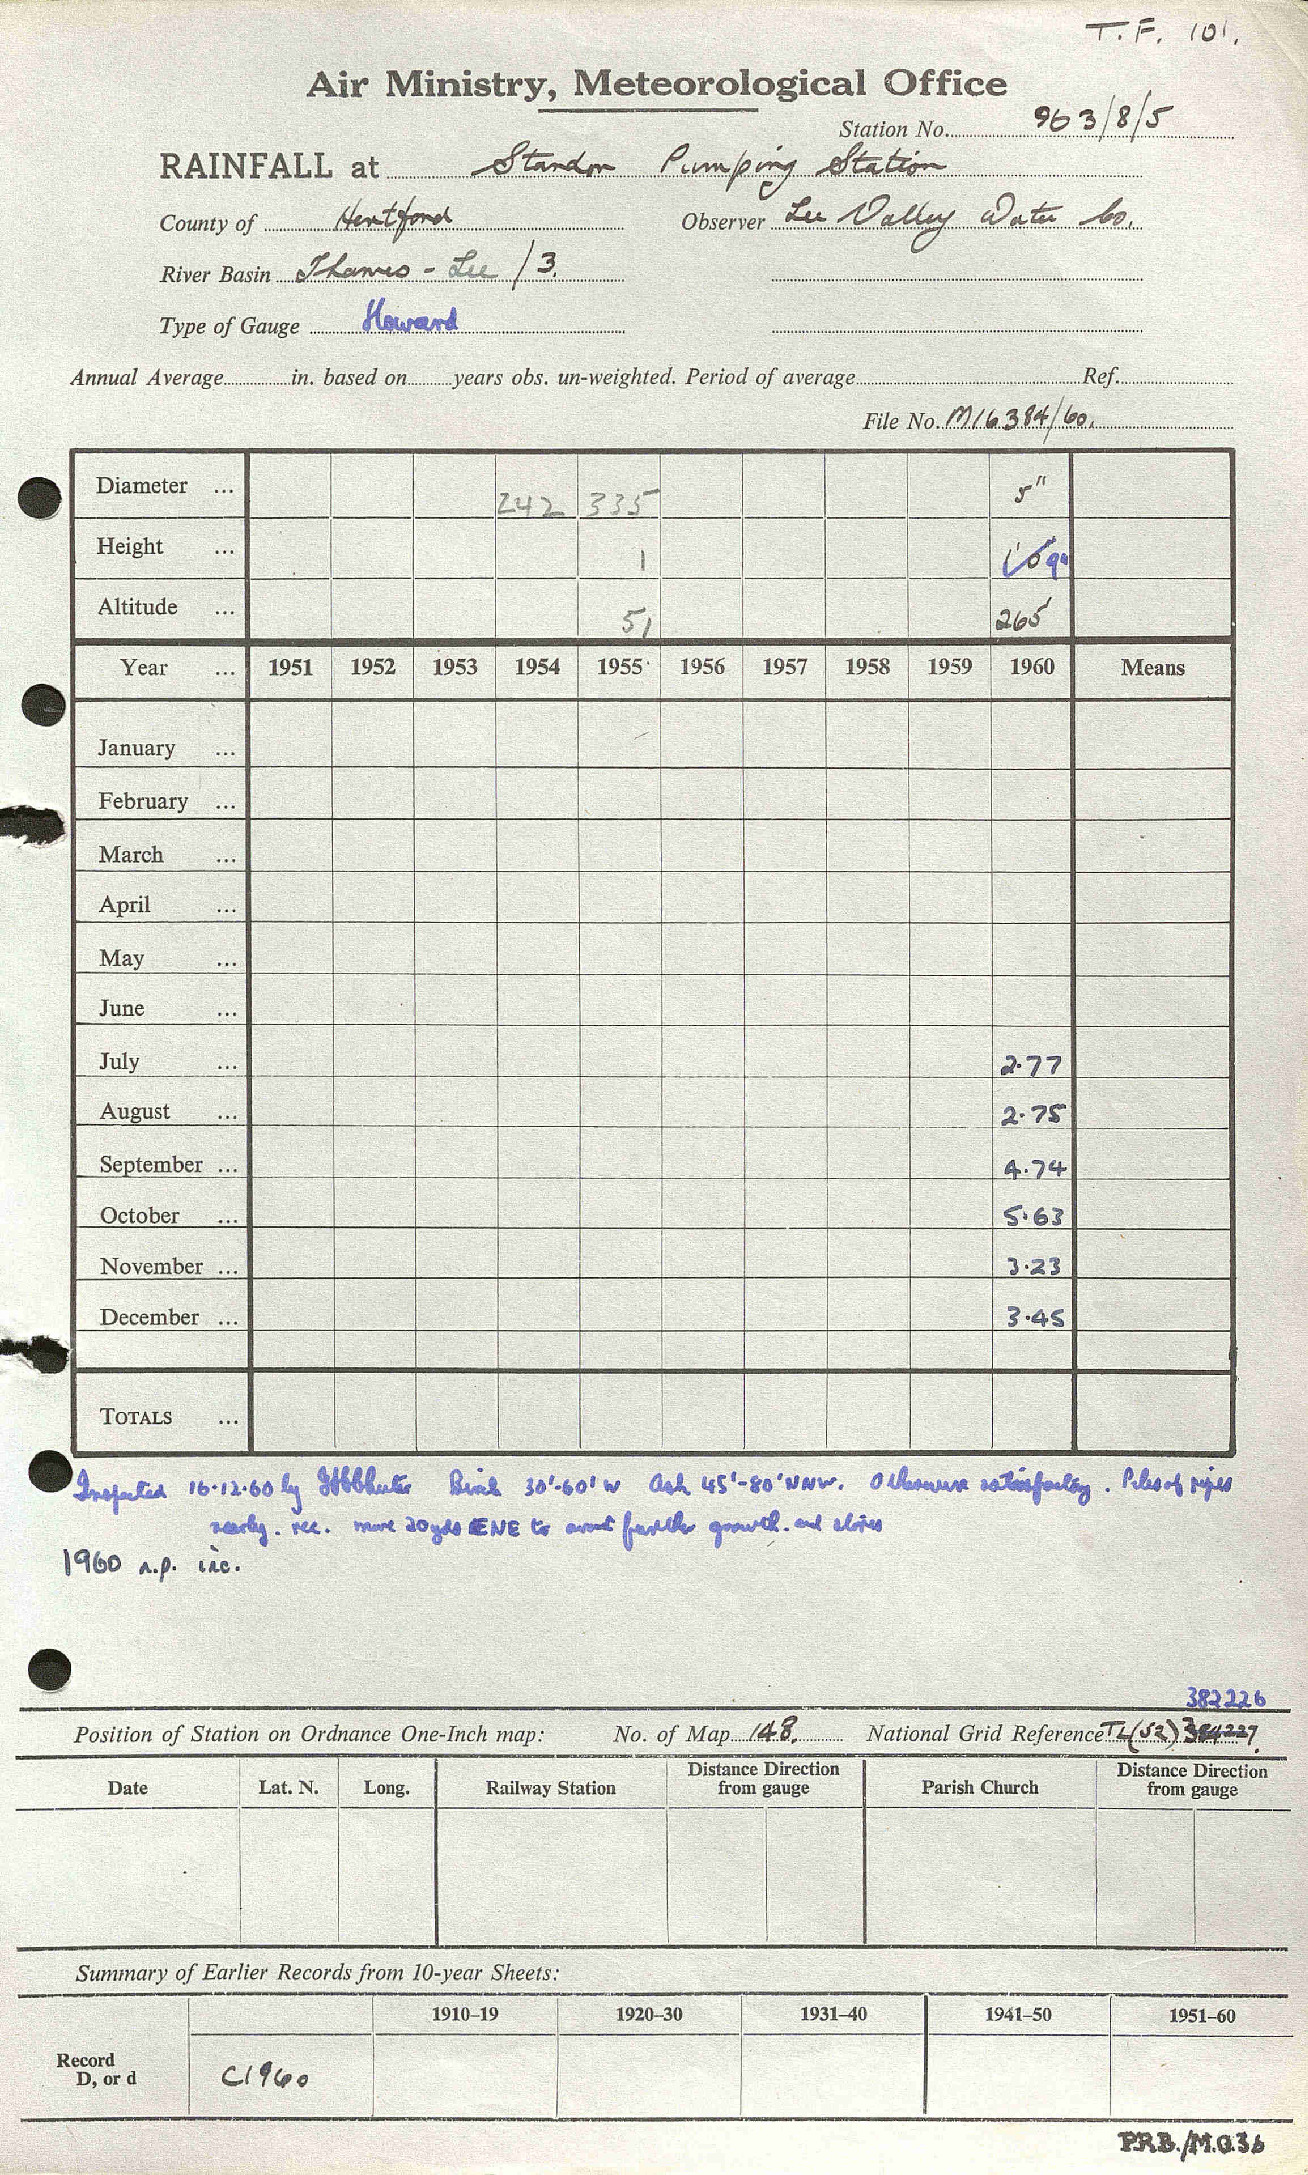 T.F. 101.
Air Ministry, Meteorological Office
Station No. 963/8/5
RAINFALL at Standon Pumping Station
County of Hertford Observer Lee Valley Water Co.
River Basin Thames - Lee /3.
Type of Gauge Howard
Annual Average in. based on years obs. un-weighted. Period of average Ref.
File No. M16384/60.
Diameter ... 242 335 5"
Height ... 1 1'0 9"
Altitude ... 51 265'
Year ... 1951 1952 1953 1954 1955 1956 1957 1958 1959 1960 Means
January ...
February ...
March ...
April ...
May ...
June ...
July ... 2.77
August ... 2.75
September ... 4.74
October ... 5.63
November ... 3.23
December ... 3.45
TOTALS ...
Inspected 16.12.60 by Birch 30'-60' W Ash 45'-80' NNW. Otherwise satisfactory. Piles of pipes
nearby. rec. move 20yds ENE to avoid further growth. and
1960 n.p. inc.
382226
Position of Station on Ordnance One-Inch map: No. of Map 148. National Grid Reference TL(52) 384227.
Date Lat. N. Long. Railway Station Distance Direction from gauge Parish Church Distance Direction from gauge
Summary of Earlier Records from 10-year Sheets:
1910–19 1920–30 1931–40 1941–50 1951–60
Record
D, or d C1960
PRB./M.O.36